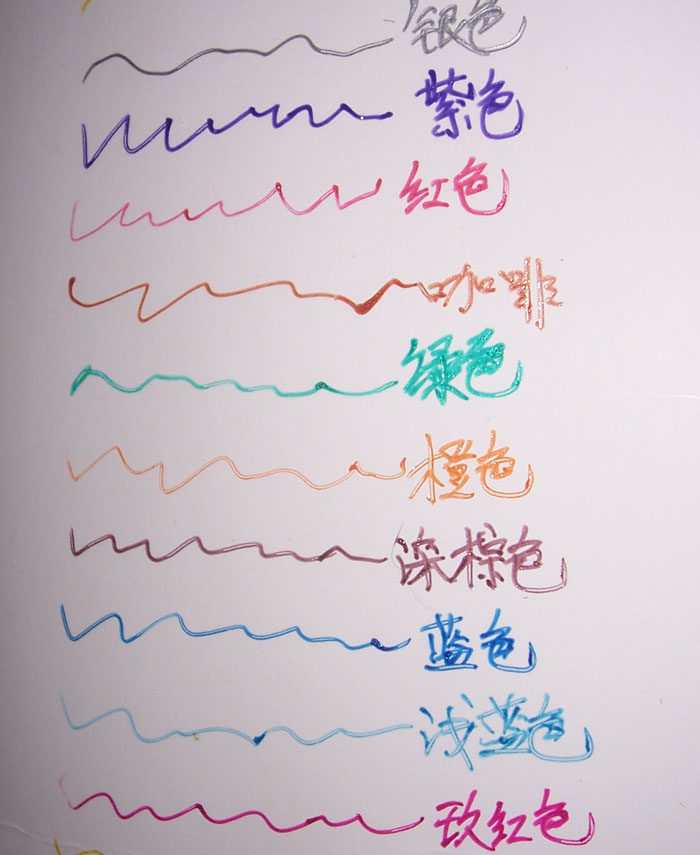 银色
紫色
红色
咖啡
绿色
橙色
深棕色
蓝色
浅蓝色
玫红色